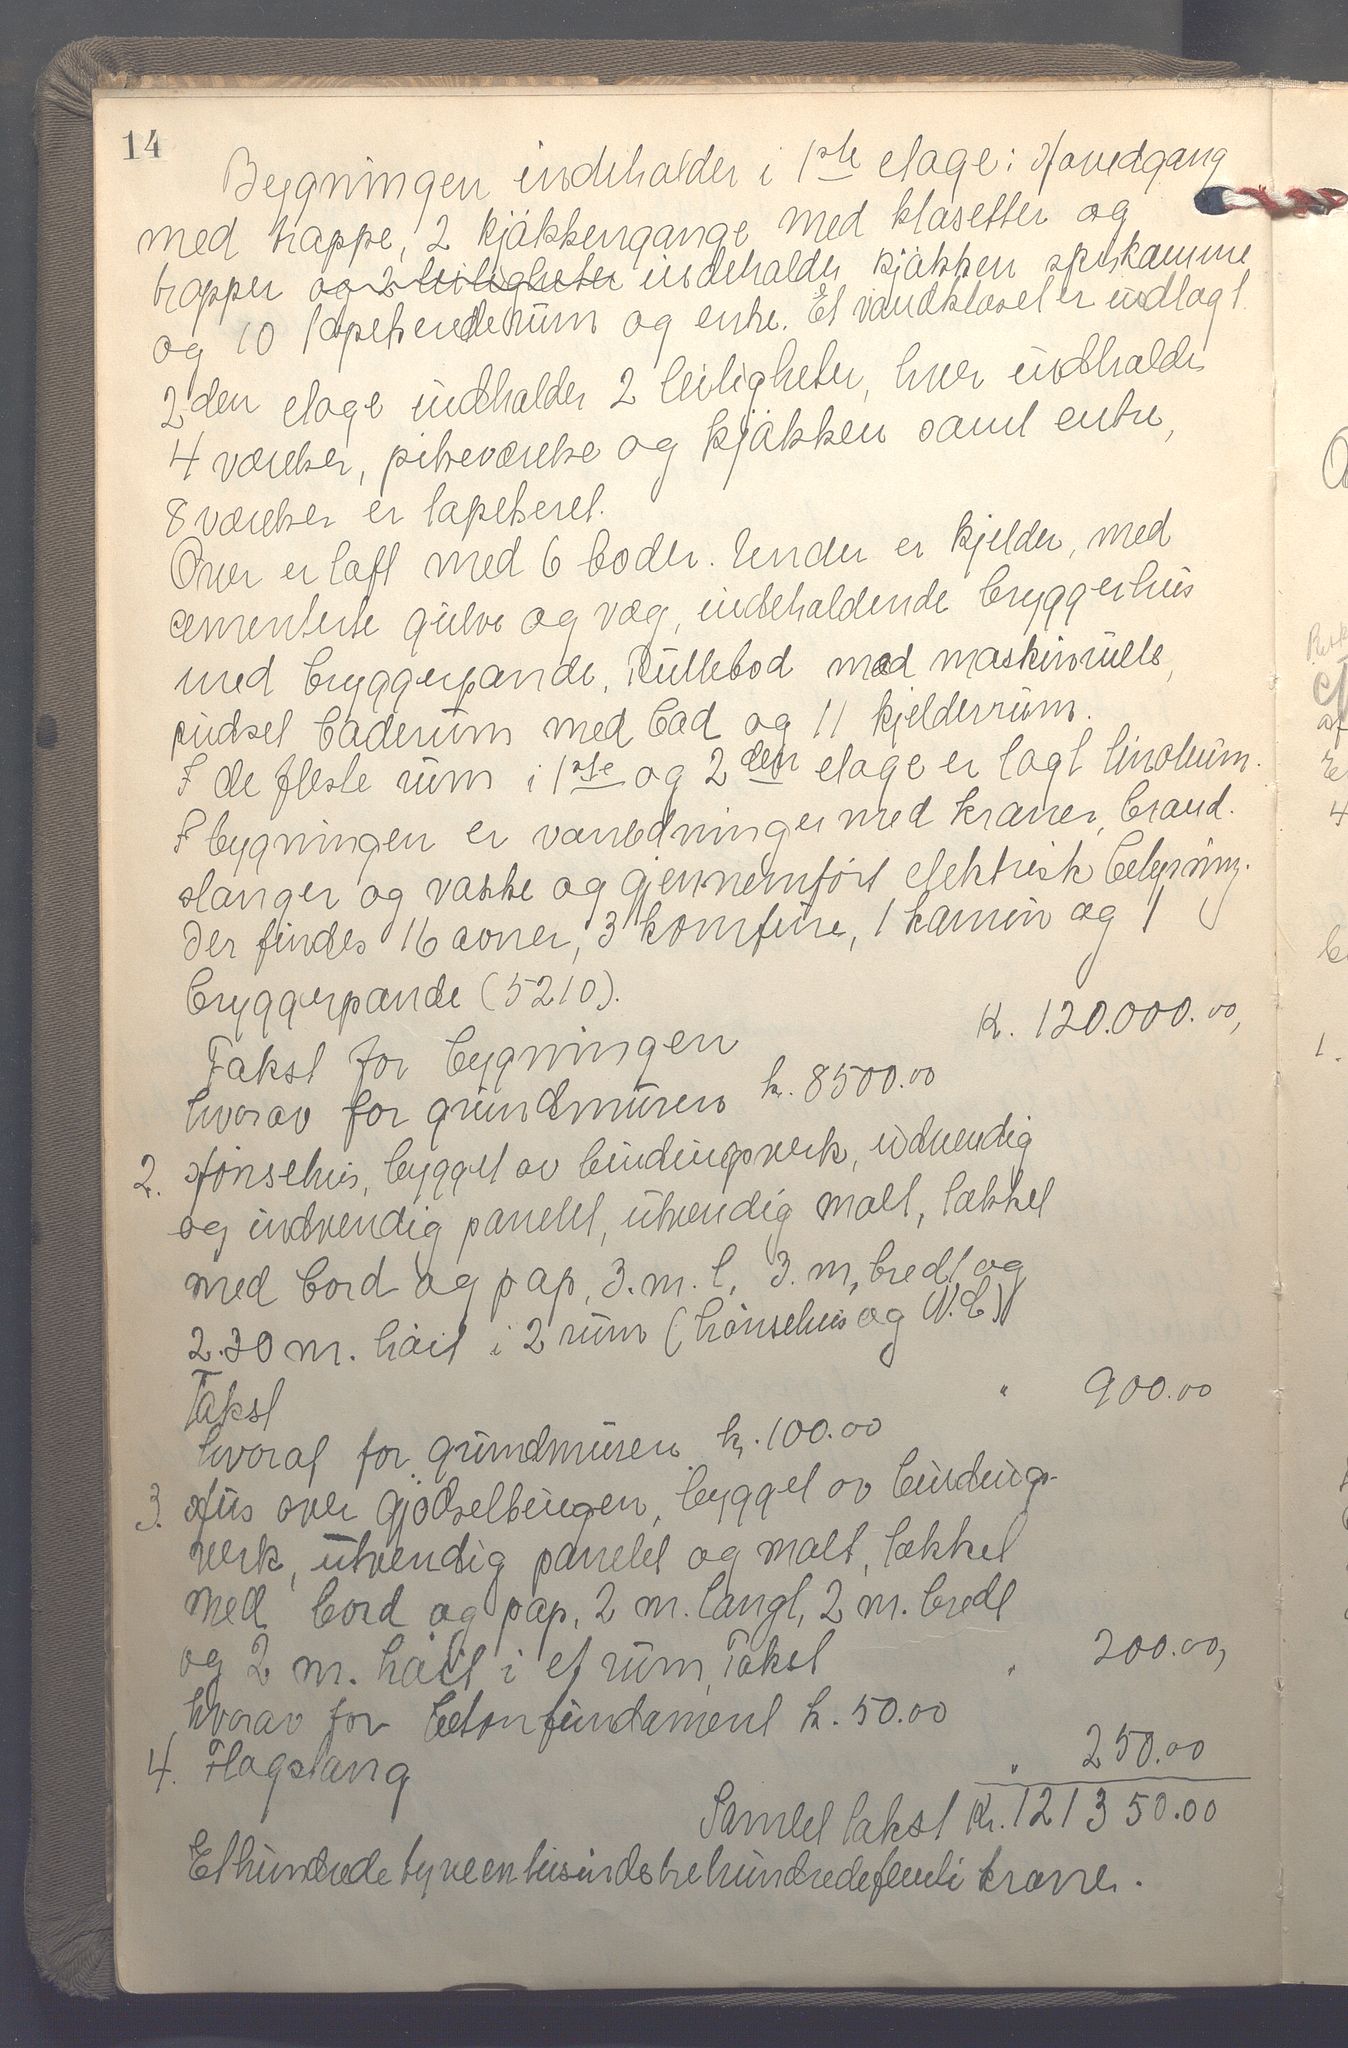 14
Bygningen indeholder i 1ste etage: Hovedgang
med trappe, 2 kjøkkengange med klosetter og
trapper og 2 leiligheter indeholder kjøkken spiskammer
og 10 tapetserede rum og entre. Et vandkloset er indlagt.
2den etage indholder 2 leiligheter, hver indholder
4 værelser, pikeværelse og kjøkken samt entre,
8 værelser er tapetseret.
Over er loft med 6 boder. Under er kjelder, med
cementerte gulve og væg, indeholdende bryggerhus
med bryggerpande, Rullebod med maskinrulle,
pudset baderum med bad og 11 kjelderrum.
I de fleste rum i 1ste og 2den etage er lagt linoleum.
I bygningen er vandledninger med kraner, brand-
slanger og vaske og gjennemført elektrisk belysning.
Der findes 16 ovner, 3 komfure, 1 kamin og 1
bryggerpande (5210).
Takst for bygningen K. 120.000.00,
hvorav for grundmuren k. 8500.00
2. Hønsehus, bygget av bindingsverk, utvendig
og indvendig panelet, utvendig malt, tækket
med bord og pap, 3. m. l, 3. m. bredt og
2.30 m. høit i 2 rum (hønsehus og W.C.)
Takst " 900.00
hvoraf for grundmuren k. 100.00
3. Hus over gjødselbingen, bygget av bindings-
verk, utvendig panelet og malt, tækket
med bord og pap, 2 m. langt, 2 m. bredt
og 2 m. høit i et rum, Takst " 200.00,
hvorav for betonfundament k. 50.00
4. Flagstang " 250.00
Samlet takst Kr. 121350.00
Ethundrede tyveen tusindetrehundredefemti kroner.